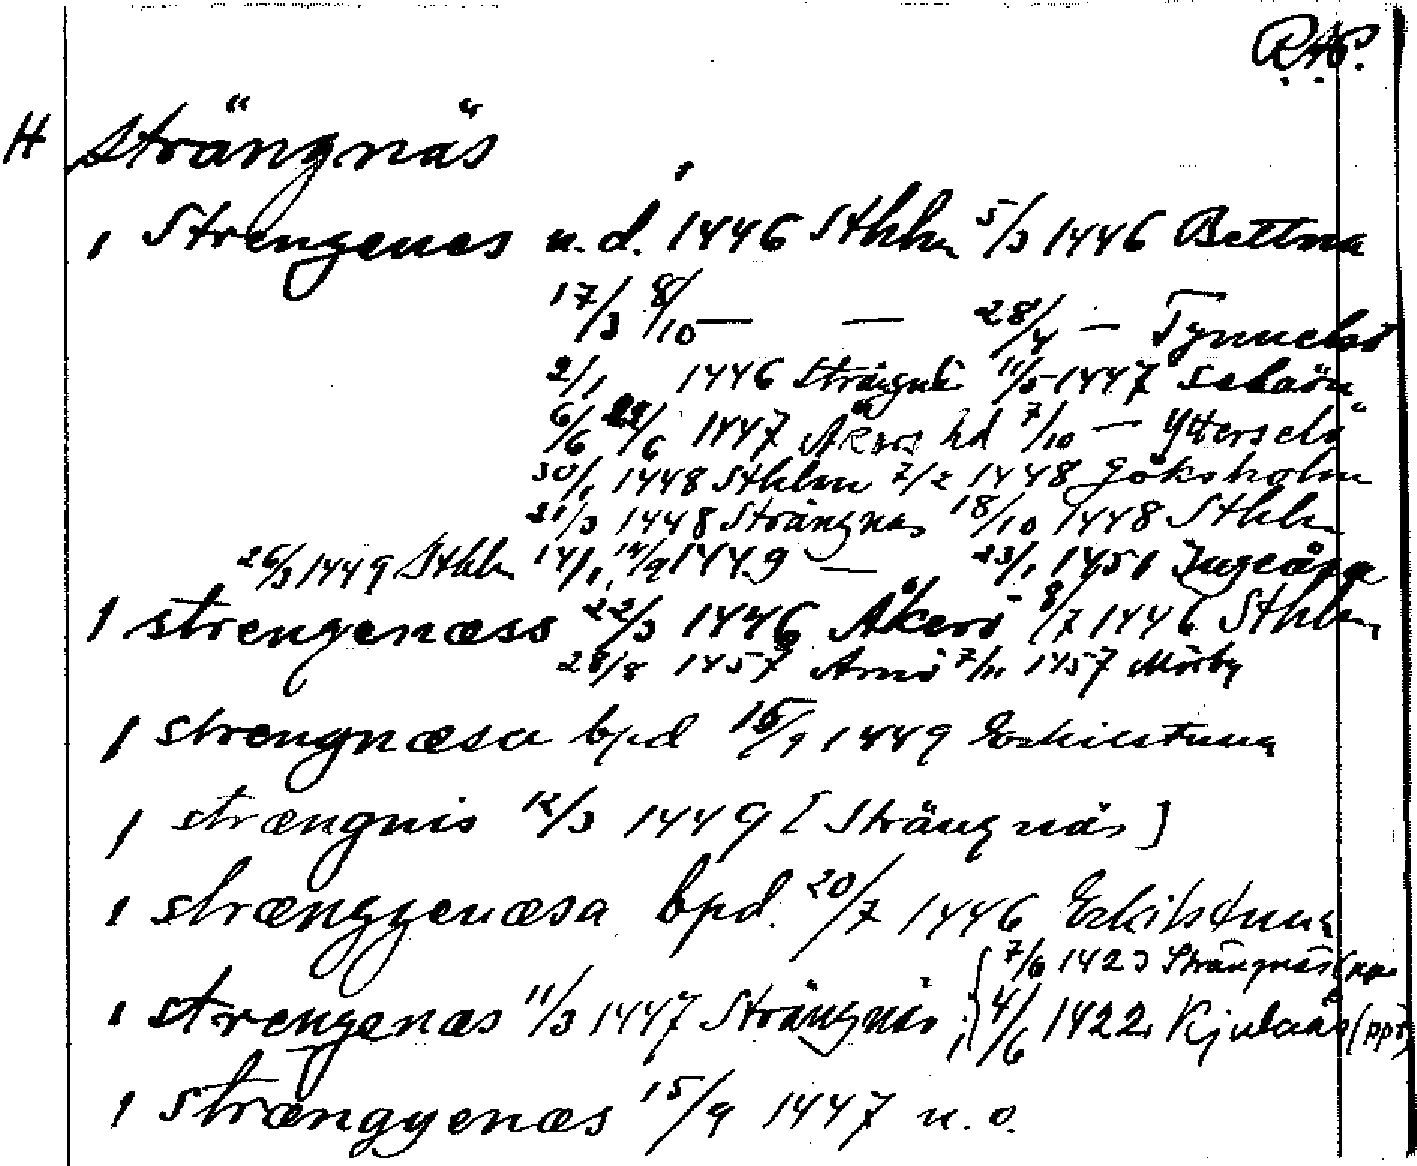 R.A.P.
H Strängnäs
, Strengenes u.d. 1446 Sthlm 5/3 1446 Bettna
17/3 8/10 — — 28/4 — Tynnelsö
2/1 1446 Strängnä 11/5 1447 Selaön
6/6 /6 1447 Åkers hd 7/10 — Ytterselö
30/1 1448 Sthlm 7/2 1448 Göksholm
21/3 1448 Strängnäs 18/10 1448 Sthlm
26/3 1449 Sthlm 14/1, 14/9 1449 — 23/1 1451
, strengenæss 22/3 1446 Åkerö 8/7 1446 Sthlm
28/8 1457 Arnö 7/11 1457 Mörby
, strengnæsa bpd 15/9 1449 Eskilstuna
, strængnis 12/3 1449 [Strängnäs]
, strænggenæsa bpd. 20/7 1446 Eskilstuna
7/6 1423 Strängnäs (pp
, strengenas 11/3 1447 Strängnäs, 4/6 1422 Kjulaås (ppr)
, strængyenæs 15/9 1447 u.o.